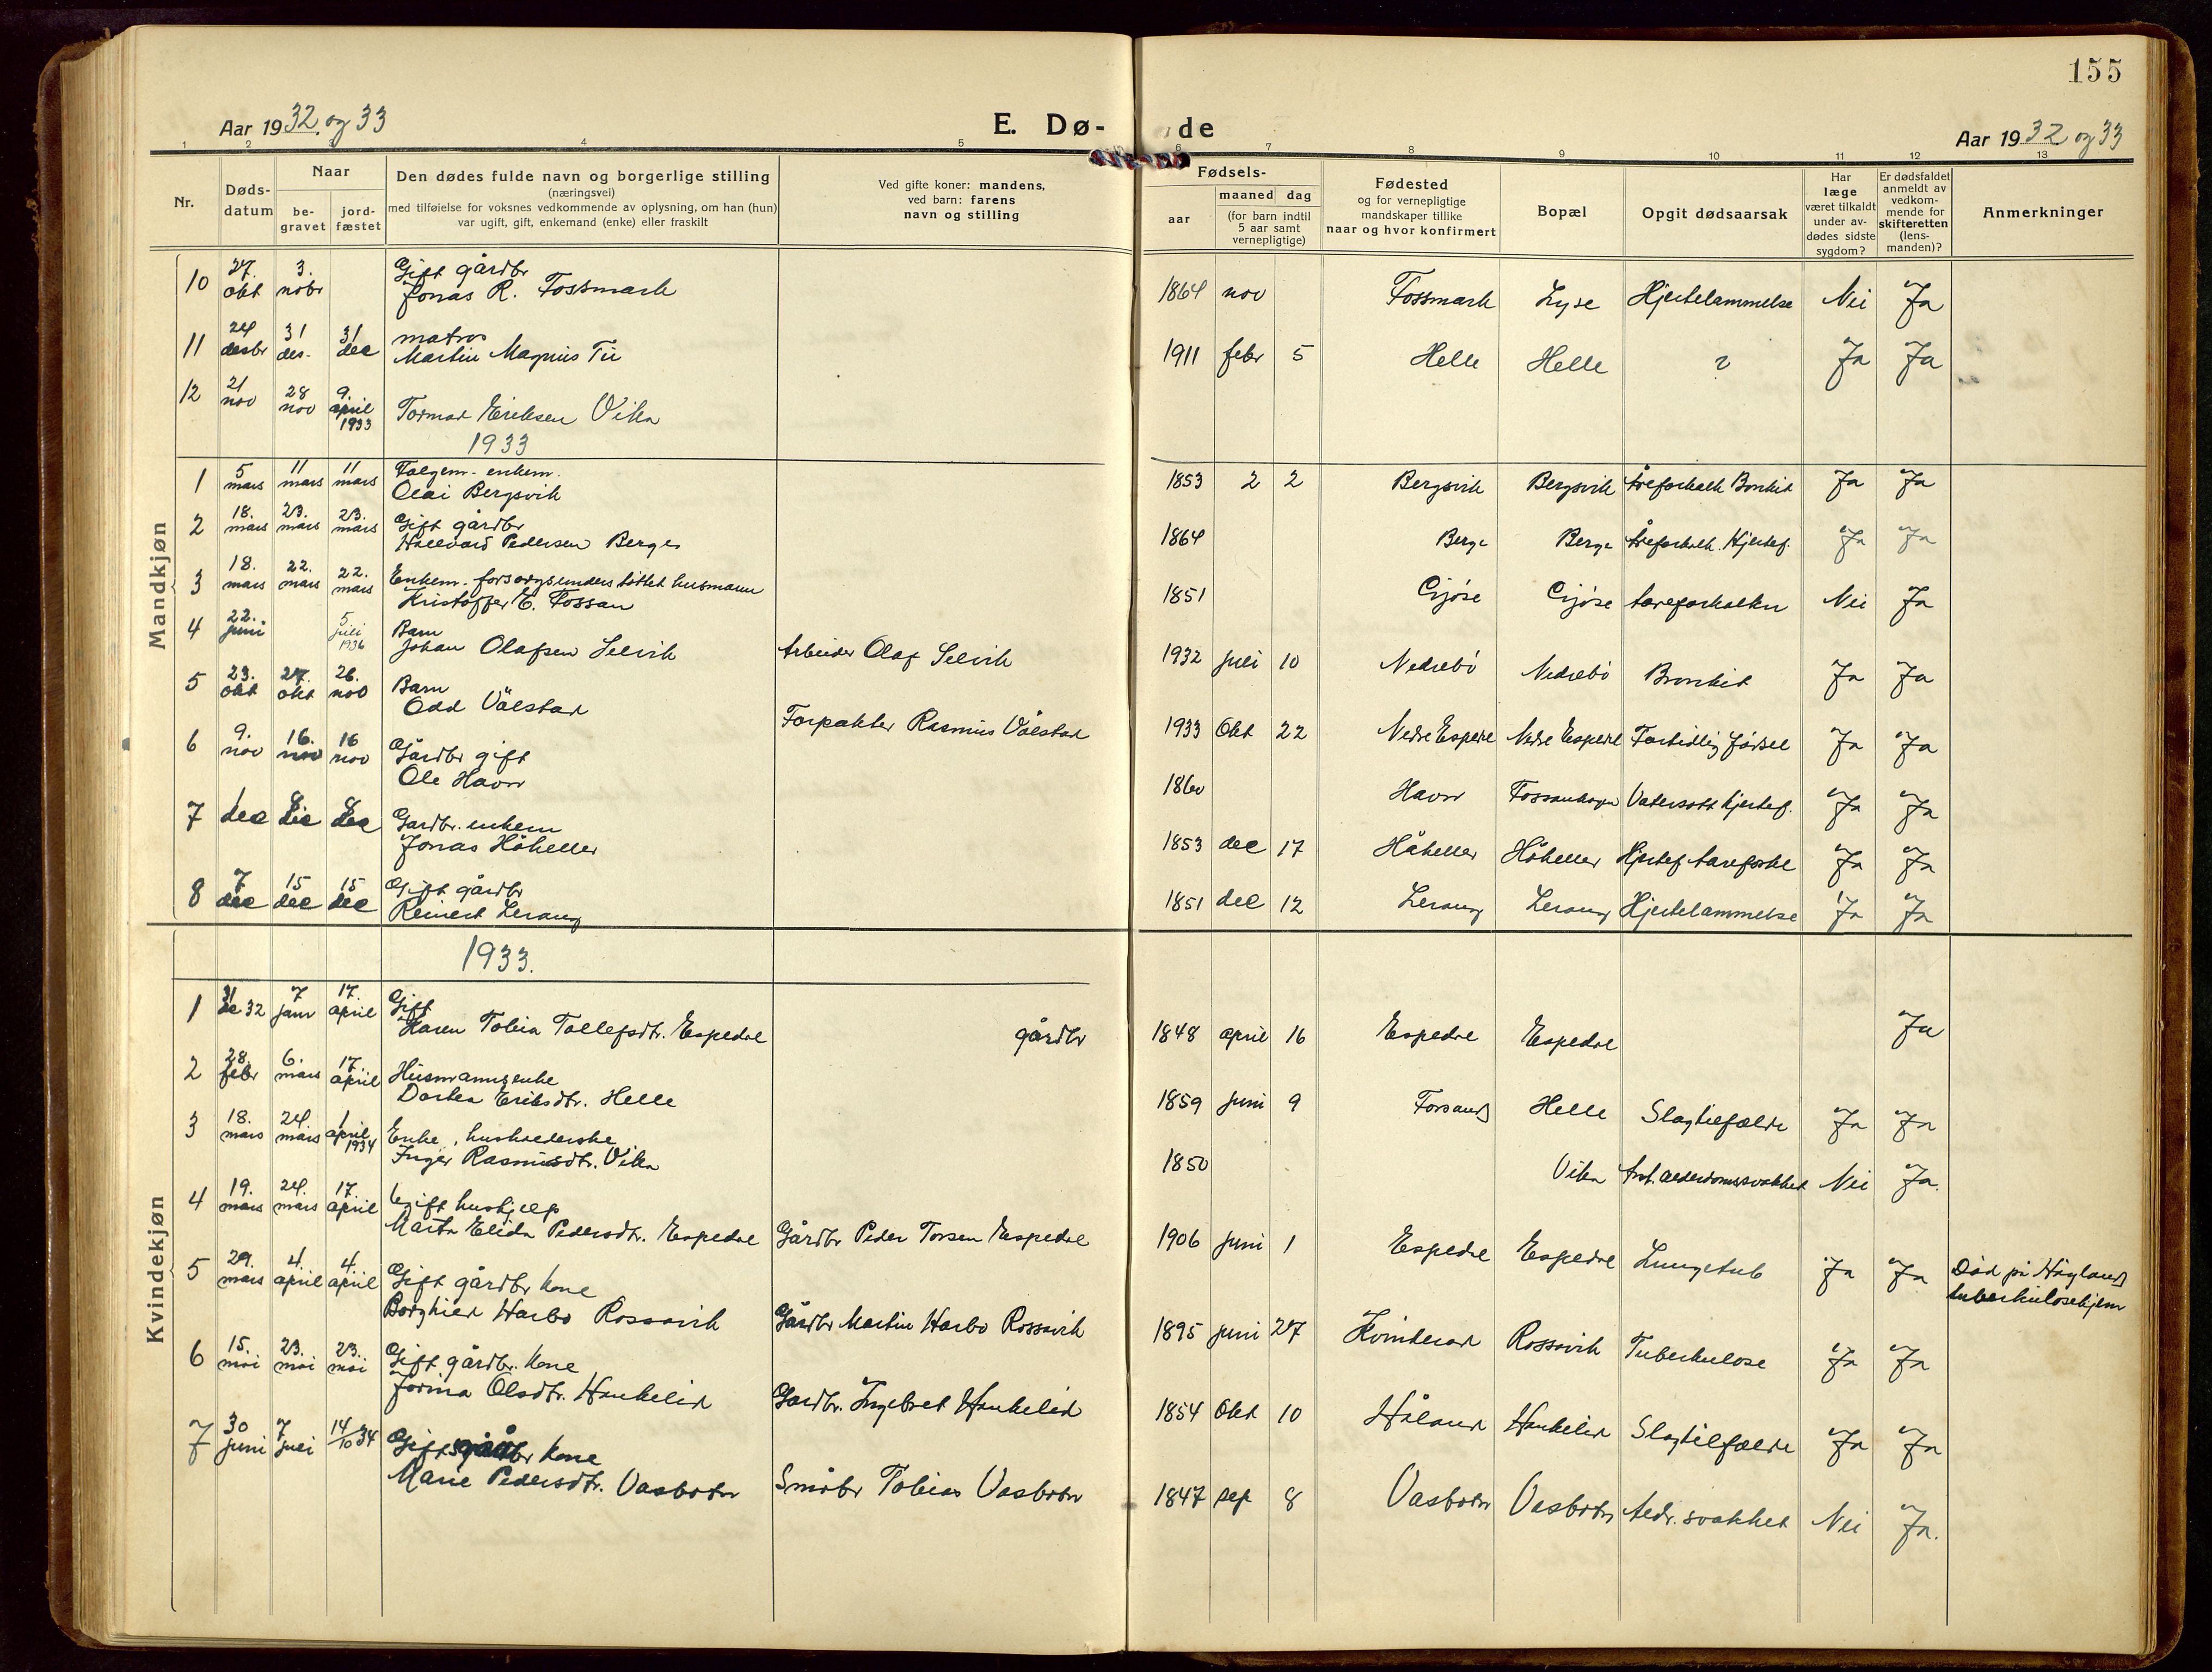 155
Aar 1932. og 33
E. Dø-
de
Aar 1932 og 33
1 2 3 4 5 6 7 8 9 10 11 12 13
Nr.
Døds-
datum
Naar
be-
gravet
jord-
fæstet
Den dødes fulde navn og borgerlige stilling
(næringsvei)
med tilføielse for voksnes vedkommende av oplysning, om han (hun)
var ugift, gift, enkemand (enke) eller fraskilt
Ved gifte koner: mandens,
ved barn: farens
navn og stilling
Fødsels-
aar
maaned dag
(for barn indtil
5 aar samt
vernepligtige)
Fødested
og for vernepligtige
mandskaper tillike
naar og hvor konfirmert
Bopæl
Opgit dødsaarsak
Har
læge
været tilkaldt
under av-
dødes sidste
sygdom?
Er dødsfaldet
anmeldt av
vedkom-
mende for
skifteretten
(lens-
manden)?
Anmerkninger
Mandkjøn
10 27. okt 3. nobr Gift gårdbr
Jonas R. Fossmark 1864 nov Fossmark Lyse Hjertelammelse Nei Ja
11 24 desbr 31 des. 31 dec matros
Martin Magnus Tii 1911 febr 5 Helle Helle ? Ja Ja
12 21 nov 28 nov 9. april 1933 Tormod Eriksen Vika
1933
1 5 mars 11 mars 11 mars Følgem. enkem.
Olai Bergsvik 1853 2 2 Bergsvik Bergsvik Åreforkalk Bronkit Ja Ja
2 18. mars 23. mars 23. mars Gift gårdbr
Hallvard Pedersen Berge 1864 Berge Berge Åreforkalk. Hjertef. Ja Ja
3 18. mars 22. mars 22. mars Enkem. forsorgsunderstøttet husmann
Kristoffer E. Fossan 1851 Gjøse Gjøse Aareforkalkn Nei Ja
4 22. juni 5. juli 1936 Barn
Johan Olafsen Selvik Arbeider Olaf Selvik 1932 juli 10 Nedrebø Nedrebø Bronkit Ja Ja
5 23. okt 27. okt 26. nov Barn
Odd Vålstad Forpakter Rasmus Vålstad 1933 Okt 22 Nedre Espedal Nedre Espedal Fortidlig fødsel Ja Ja
6 9. nov 16. nov 16 nov Gårdbr gift
Ole Havn 1860 Havn Fossanhagen Vatersott hjertef. Ja Ja
7 1 dec 8 dec 8 dec Gardbr. enkem
Jonas Håheller 1853 dec 17 Håheller Håheller Hjertef. Aareforkal Ja Ja
8 7 dec 15 dec 15 dec Gift gårdbr
Reinert Lerang 1851 dec 12 Lerang Lerang Hjertelammelse Ja Ja
Kvindekjøn
1933.
1 31 de 32 7 janr 17. april Gift
Karen Tobia Tollefsdtr. Espedal gårdbr 1848 april 16 Espedal Espedal Ja
2 28. febr 6. mars 17 april Husmannsenke
Dortea Eriksdtr. Helle 1859 juni 9 Forsand Helle Slagtilfælde Ja Ja
3 18. mars 24. mars 1 april 1934 Enke, husholderske
Inger Rasmusdtr. Vika 1850 Vika Ant. alderdomssvakhet Nei Ja.
4 19. mars 24. mars 17. april Ugift hushjelp
Marta Elida Pedersdtr. Espedal Gårdbr Peder Torsen Espedal 1906 juni 1 Espedal Espedal Lungetub Ja Ja Død på Högland
tuberkulosehjem
5 29. mars 4. april 4. april Gift gårdbr kone
Borghild Harbo Rossavik Gårdbr Martin Harbo Rossavik 1895 juni 27 Kvinherad Rossavik Tuberkulose Ja Ja
6 15. mai 23. mai 23. mai Gift gårdbr. kone
Jorina Olsdtr. Haukelid Gardbr. Ingebret Haukelid 1854 Okt 10 Håland Haukelid Slagtilfælde Ja Ja
7 30 juni 7 juli 14/10 34 Gift småbr kone
Marie Pedersdtr. Vasbotn Småbr Tobias Vasbotn 1847 sep 8 Vasbotn Vasbotn Aldr. svakhet Nei Ja.